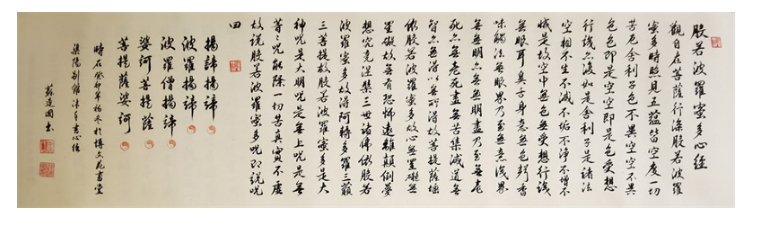 般若波羅蜜多心經
觀自在菩薩行深般若波羅
蜜多時照見五蘊皆空度一切
苦厄舍利子色不異空空不異
色色即是空空即是色受想
行識亦復如是舍利子是諸法
空相不生不滅不垢不淨不增不
減是故空中無色無受想行識
無眼耳鼻舌身意無色聲香
味觸法無眼界乃至無意識界
無無明亦無無明盡乃至無老
死亦無老死盡無苦集滅道無
智亦無得以無所得故菩提薩埵
依般若波羅蜜多故心無罣礙無
罣礙故無有恐怖遠離顛倒夢
想究竟涅槃三世諸佛依般若
波羅蜜多故得阿耨多羅三藐
三菩提故般若波羅蜜多是大
神咒是大明咒是無上咒是無
等等咒能除一切苦真實不虛
故說般若波羅蜜多咒即說咒
曰
揭諦揭諦
波羅揭諦
波羅僧揭諦
婆訶菩提薩
菩提薩婆訶
時在癸卯年冬於博文苑書堂
沐手書心經